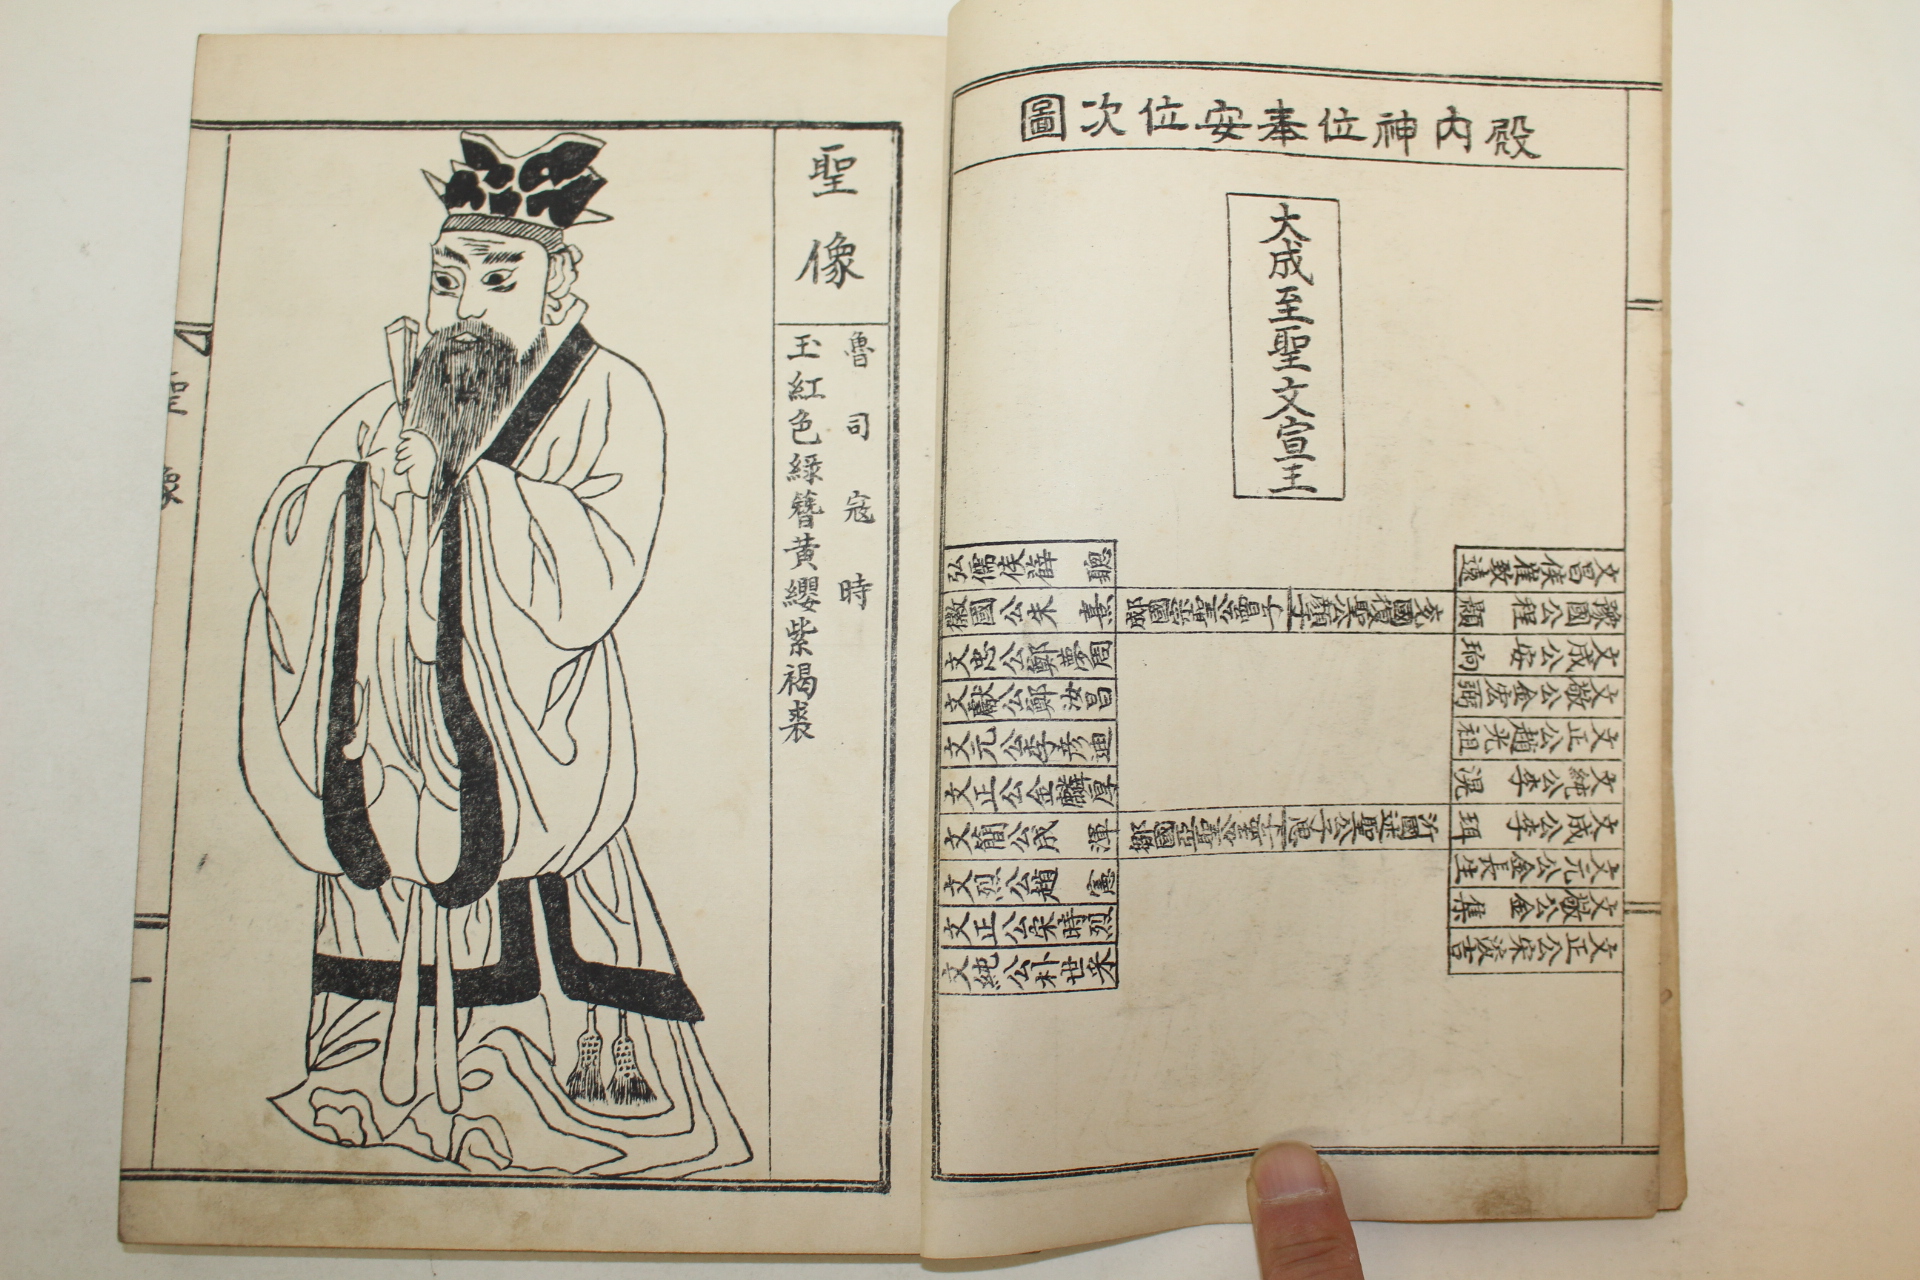 殿內神位奉安位次圖
大成至聖文宣王
兗國復聖公顔子
沂國述聖公子思
郕國宗聖公曾子
鄒國亞聖公孟子
文昌侯崔致遠
豫國公程顥
文成公安珦
文敬公金宏弼
文正公趙光祖
文純公李滉
文成公李珥
文元公金長生
文敬公金集
文正公宋浚吉
弘儒侯薛聰
徽國公朱熹
文忠公鄭夢周
文獻公鄭汝昌
文元公李彦迪
文正公金麟厚
文簡公成渾
文烈公趙憲
文正公宋時烈
文純公朴世采
聖像
魯司寇時
玉紅色綠簪黃纓紫褐裘
聖像
一